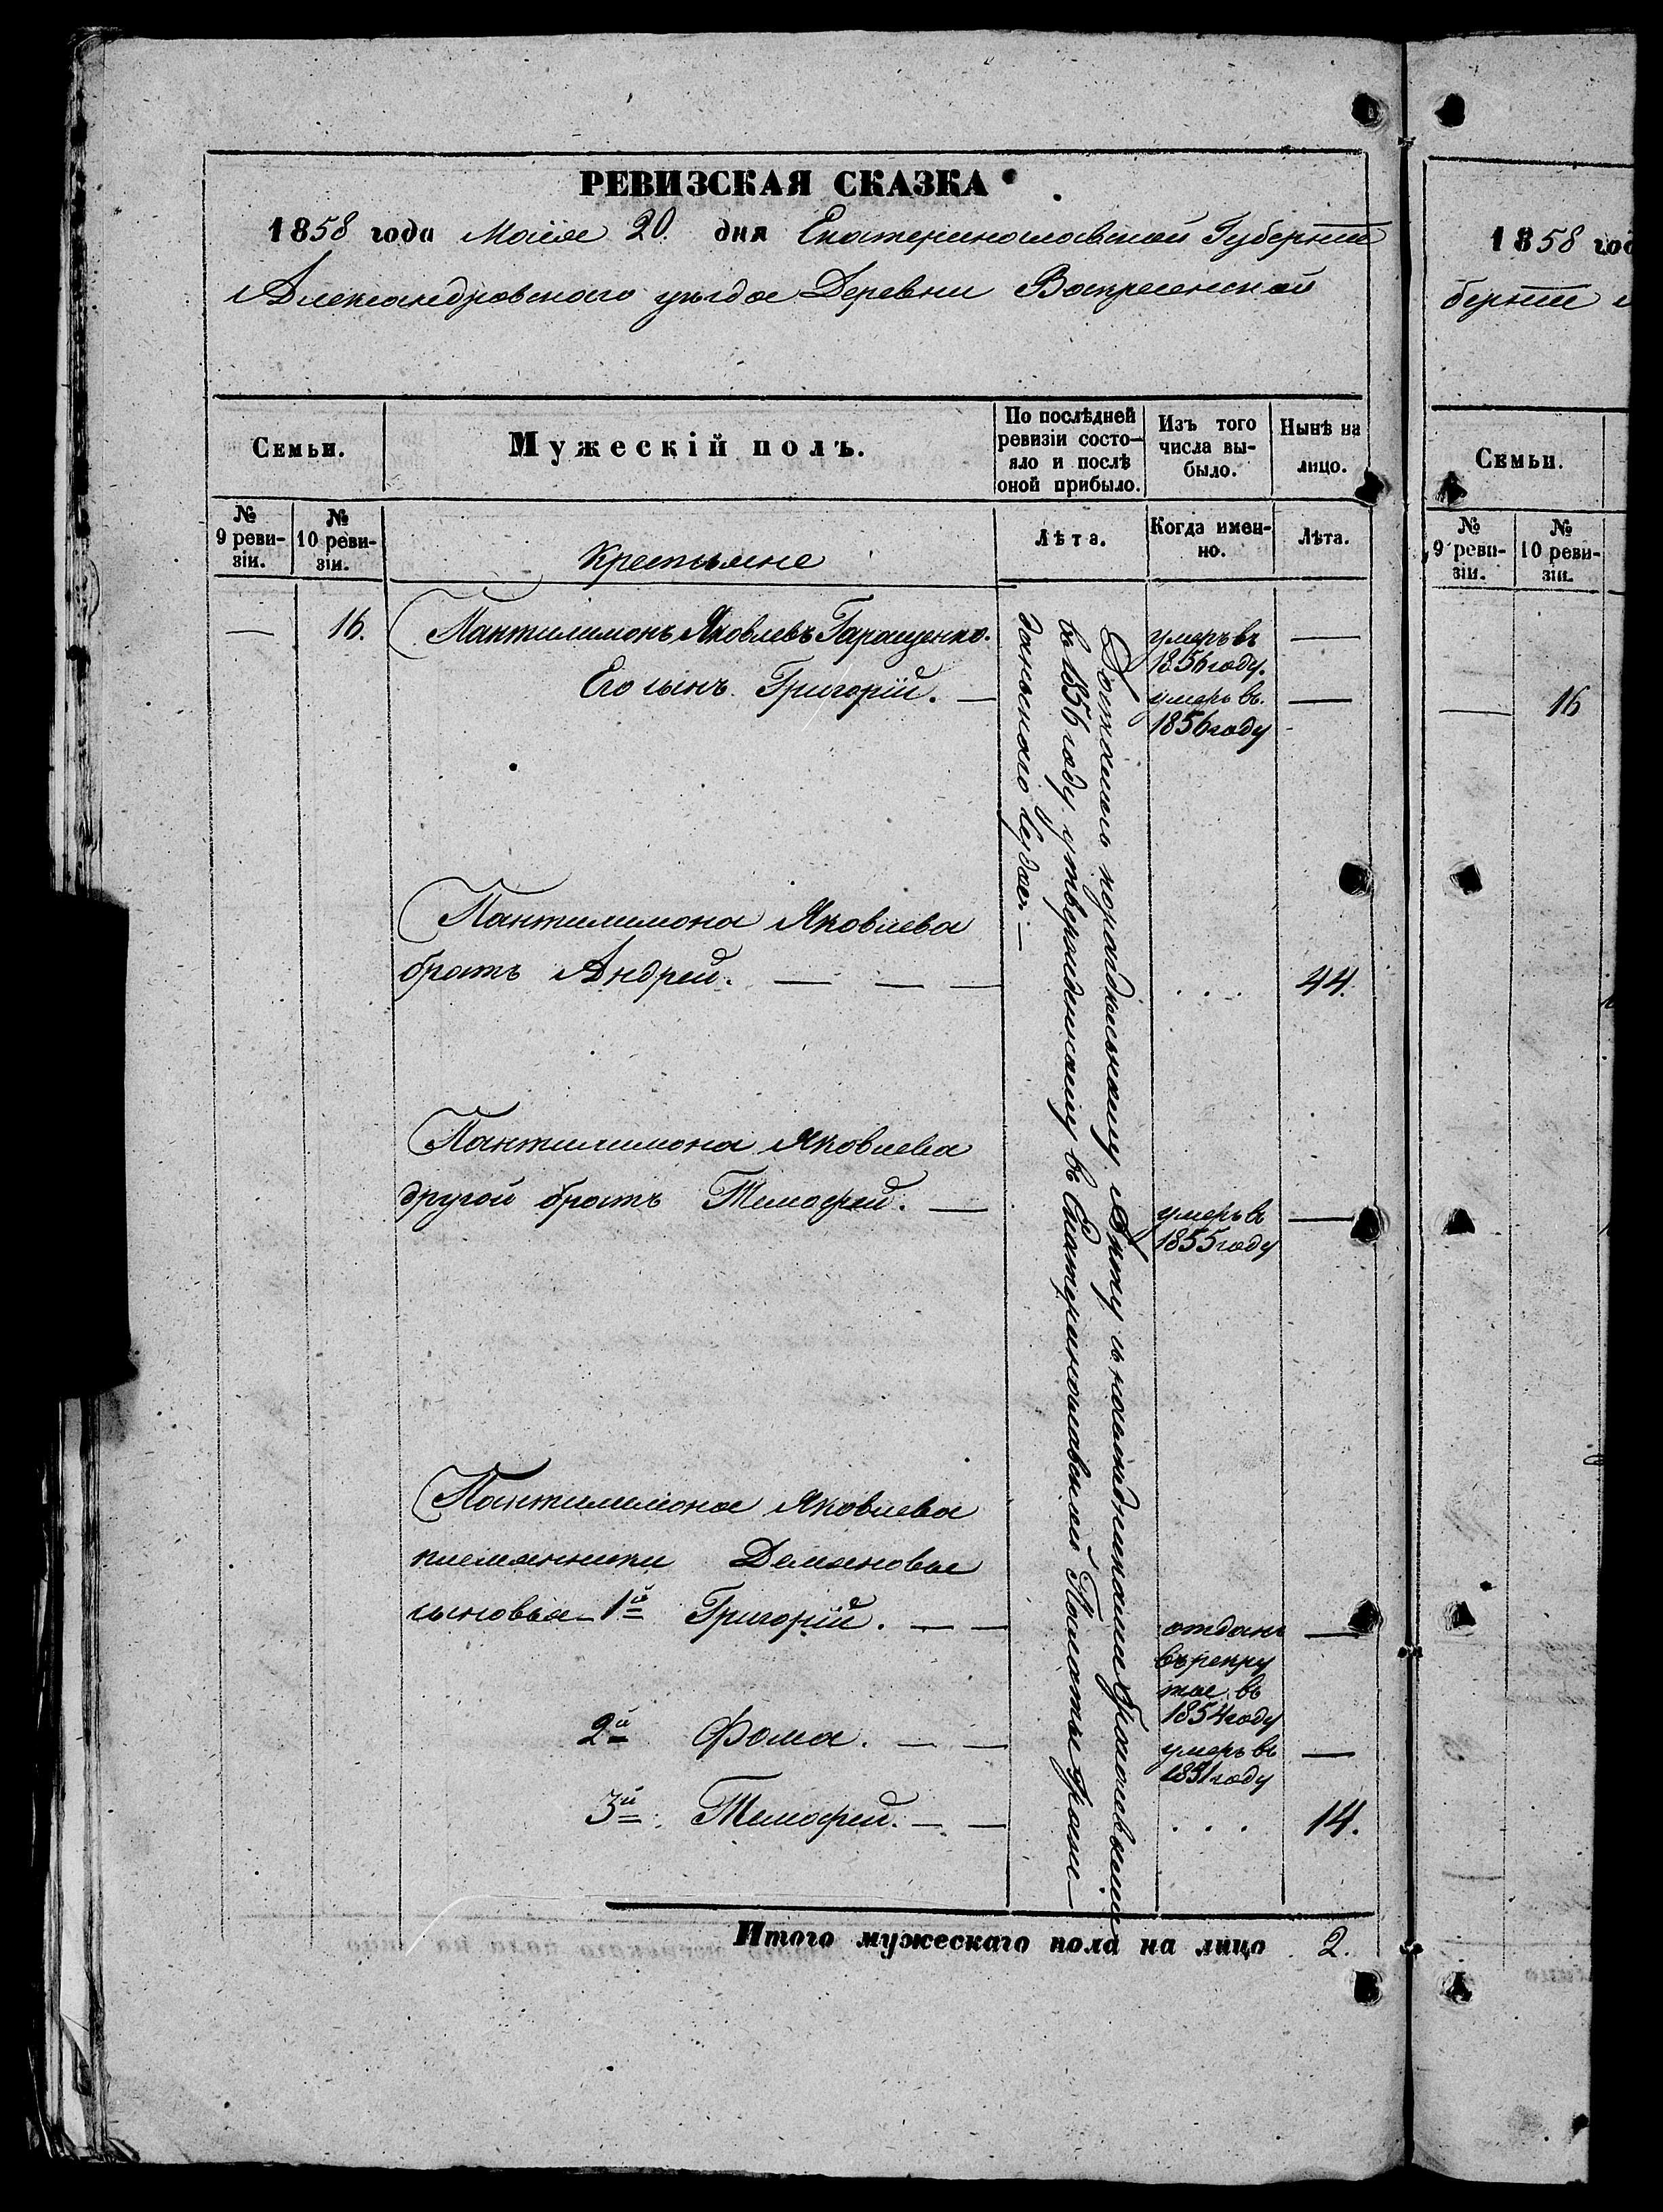 РЕВИЗСКАЯ СКАЗКА
1858 года Маія 20 дня Екатеринославской Губерніи
Александровскаго уѣзда Деревни Воскресенской
Семьи.
Мужескій полъ.
По послѣдней ревизіи состо-
яло и послѣ
оной прибыло.
Изъ того
числа вы-
было.
Нынѣ на
лицо.
№
9 реви-
зіи.
№
10 реви-
зіи.
Крестьяне
Лѣта.
Когда имен-
но.
Лѣта.
— 16. Пантилимонъ Яковлевъ Геращенко.
умеръ въ
1856 году.
—
Его сынъ Григорій. —
умеръ въ
1856 году
—
Пантилимона Яковлева
братъ Андрей. — — — . . . 44.
Пантилимона Яковлева
другой братъ Тимофей. —
умеръ въ
1855 году
—
Пантилимона Яковлева
племянники Демяновы
сыновья 1й Григорій. — —
отданъ
въ рекру
ты въ
1854 году
—
2й Фома. — —
умеръ въ
1851 году
—
3й Тимофей. — — . . . 14.
въ 1856 году утвержденному въ Екатеринославской Палаты Граж—
данскаго Суда. —
Итого мужескаго пола на лицо 2.
1858 год
берніи
Семьи.
№
9 реви-
зіи.
№
10 реви-
зіи.
— 16